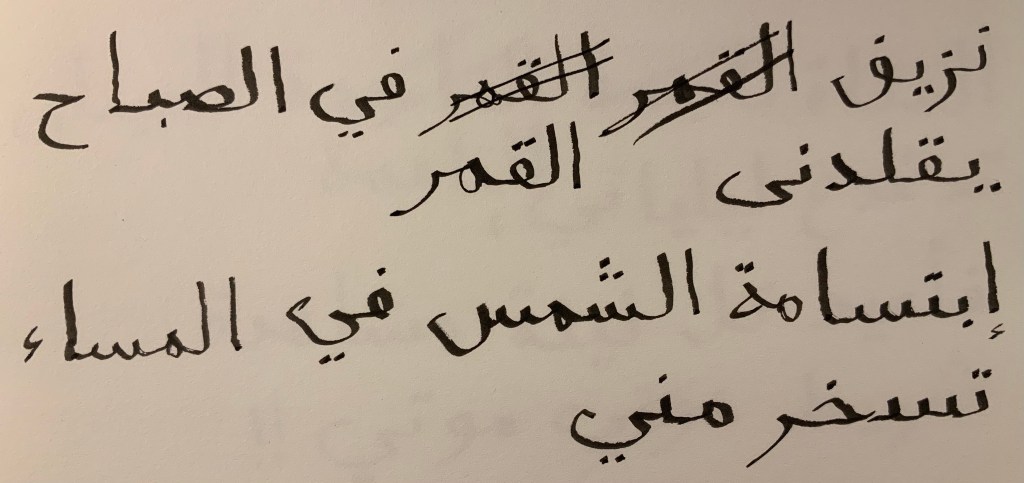 نزيف القمر القمر في الصباح
يقلدنى القمر
إبتسامة الشمس في المساء
تسخر مني